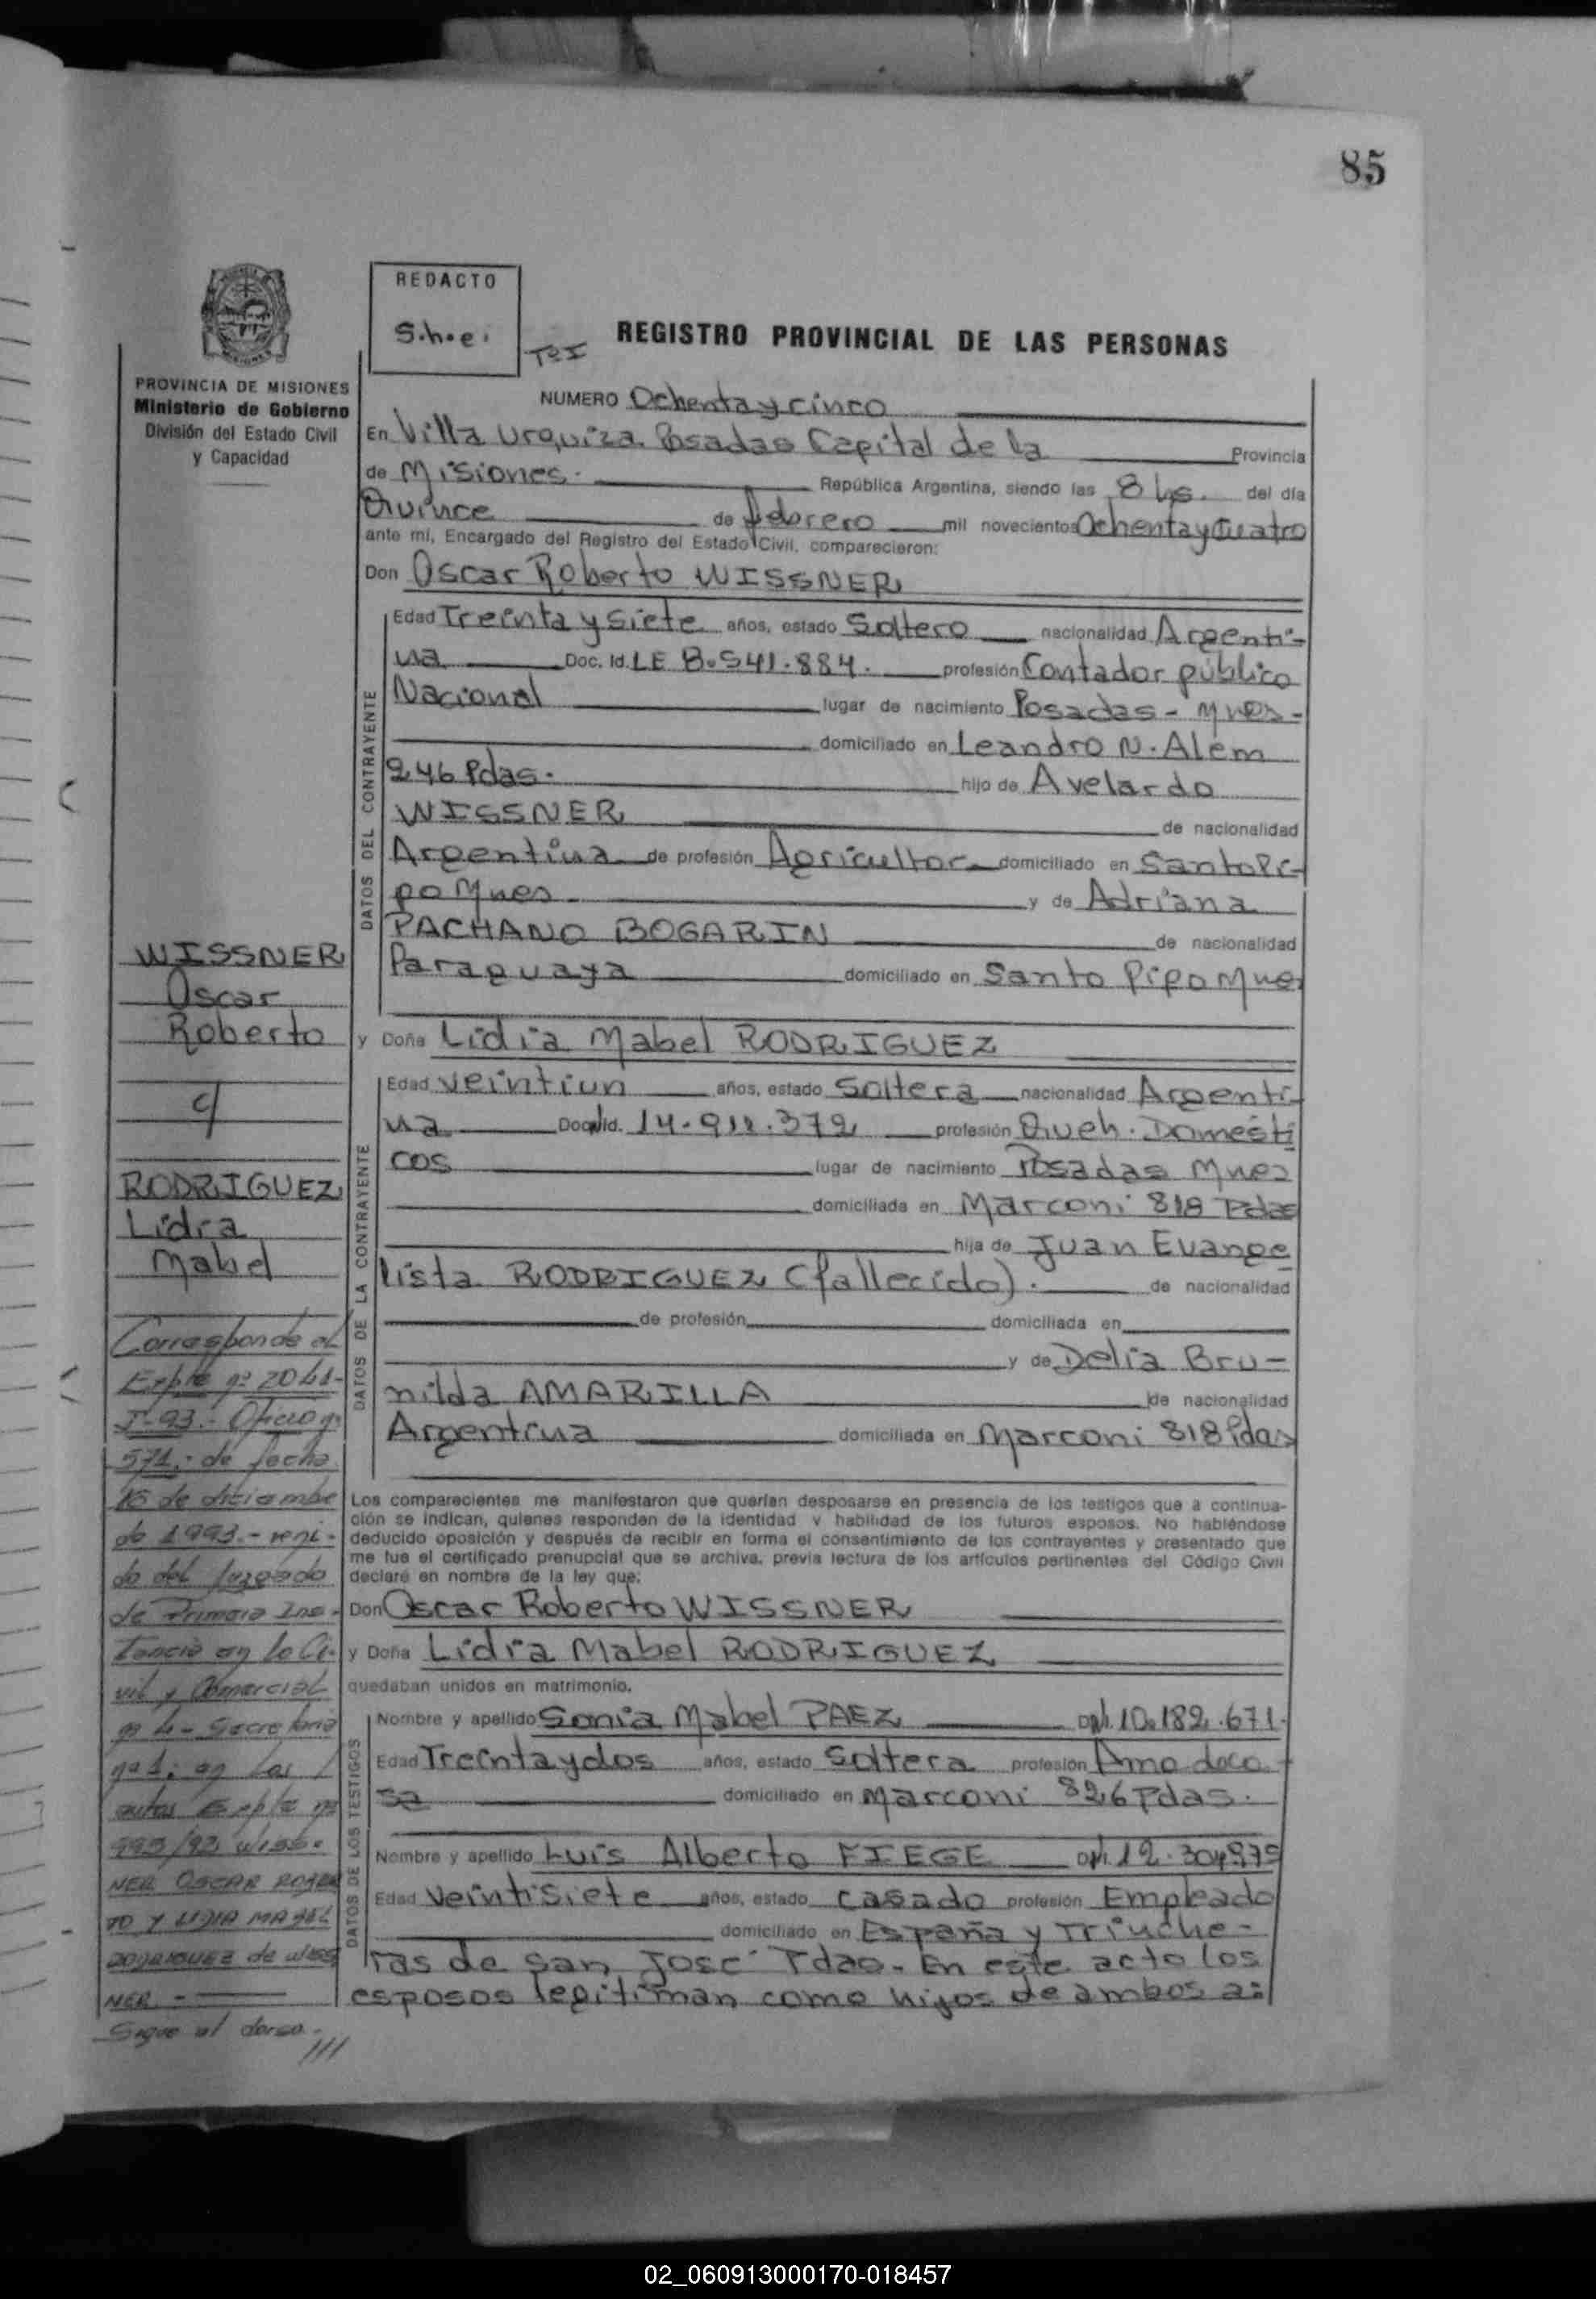 85
REDACTO
S.h.e.
Tº I
REGISTRO PROVINCIAL DE LAS PERSONAS
PROVINCIA DE MISIONES
Ministerio de Gobierno
División del Estado Civil
y Capacidad
NUMERO Ochenta y cinco
En Villa Urquiza Posadas Capital de la Provincia
de Misiones. República Argentina, siendo las 8 hs. del día
Quince de febrero mil novecientos Ochenta y Cuatro
ante mí, Encargado del Registro del Estado Civil, comparecieron:
Don Oscar Roberto WISSNER
DATOS DEL CONTRAYENTE
Edad Treinta y siete años, estado Soltero nacionalidad Argenti-
na Doc. Id. LE 8.541.884. profesión Contador público
Nacional lugar de nacimiento Posadas - Mnes -
domiciliado en Leandro N. Alem
246 Pdas. hijo de Avelardo
WISSNER de nacionalidad
Argentina de profesión Agricultor domiciliado en Santo Pi-
po Mnes y de Adriana
PACHANO BOGARIN de nacionalidad
Paraguaya domiciliado en Santo Pipo Mnes
y Doña Lidia Mabel RODRIGUEZ
DATOS DE LA CONTRAYENTE
Edad veintiun años, estado Soltera nacionalidad Argenti-
na Doc. Id. 14.912.372 profesión Queh. Domésti
cos lugar de nacimiento Posadas Mnes
domiciliada en Marconi 818 Pdas
hija de Juan Evange
lista RODRIGUEZ (fallecido). de nacionalidad
de profesión domiciliada en
y de Delia Bru-
nilda AMARILLA de nacionalidad
Argentina domiciliada en Marconi 818 Pdas
Los comparecientes me manifestaron que querían desposarse en presencia de los testigos que a continua-
ción se indican, quienes responden de la identidad y habilidad de los futuros esposos. No habiéndose
deducido oposición y después de recibir en forma el consentimiento de los contrayentes y presentado que
me fue el certificado prenupcial que se archiva, previa lectura de los artículos pertinentes del Código Civil
declaré en nombre de la ley que:
Don Oscar Roberto WISSNER
y Doña Lidia Mabel RODRIGUEZ
quedaban unidos en matrimonio.
DATOS DE LOS TESTIGOS
Nombre y apellido Sonia Mabel PAEZ DNI. 10.182.671.
Edad Treinta y dos años, estado Soltera profesión Ama de ca-
sa domiciliado en Marconi 826 Pdas.
Nombre y apellido Luis Alberto FIEGE DNI. 12.304.979
Edad Veintisiete años, estado casado profesión Empleado
domiciliado en España y Trinche-
ras de San José Pdas. En este acto los
esposos legitiman como hijos de ambos a:
WISSNER
Oscar
Roberto
c/
RODRIGUEZ
Lidia
Mabel
Corresponde al
Expte nº
I-93.- Oficio nº
571.- de fecha
16 de diciembre
de 1993.- remi-
do del Juzgado
de Primera Ins-
tancia en lo Ci-
vil y Comercial
nº 4 - Secretaria
nº 1; en los
autos Expte nº
993/92 WISS-
NER OSCAR ROBER
TO Y LIDIA MABEL
RODRIGUEZ de WISS
NER.-
Sigue al dorso.-
///
02_060913000170-018457